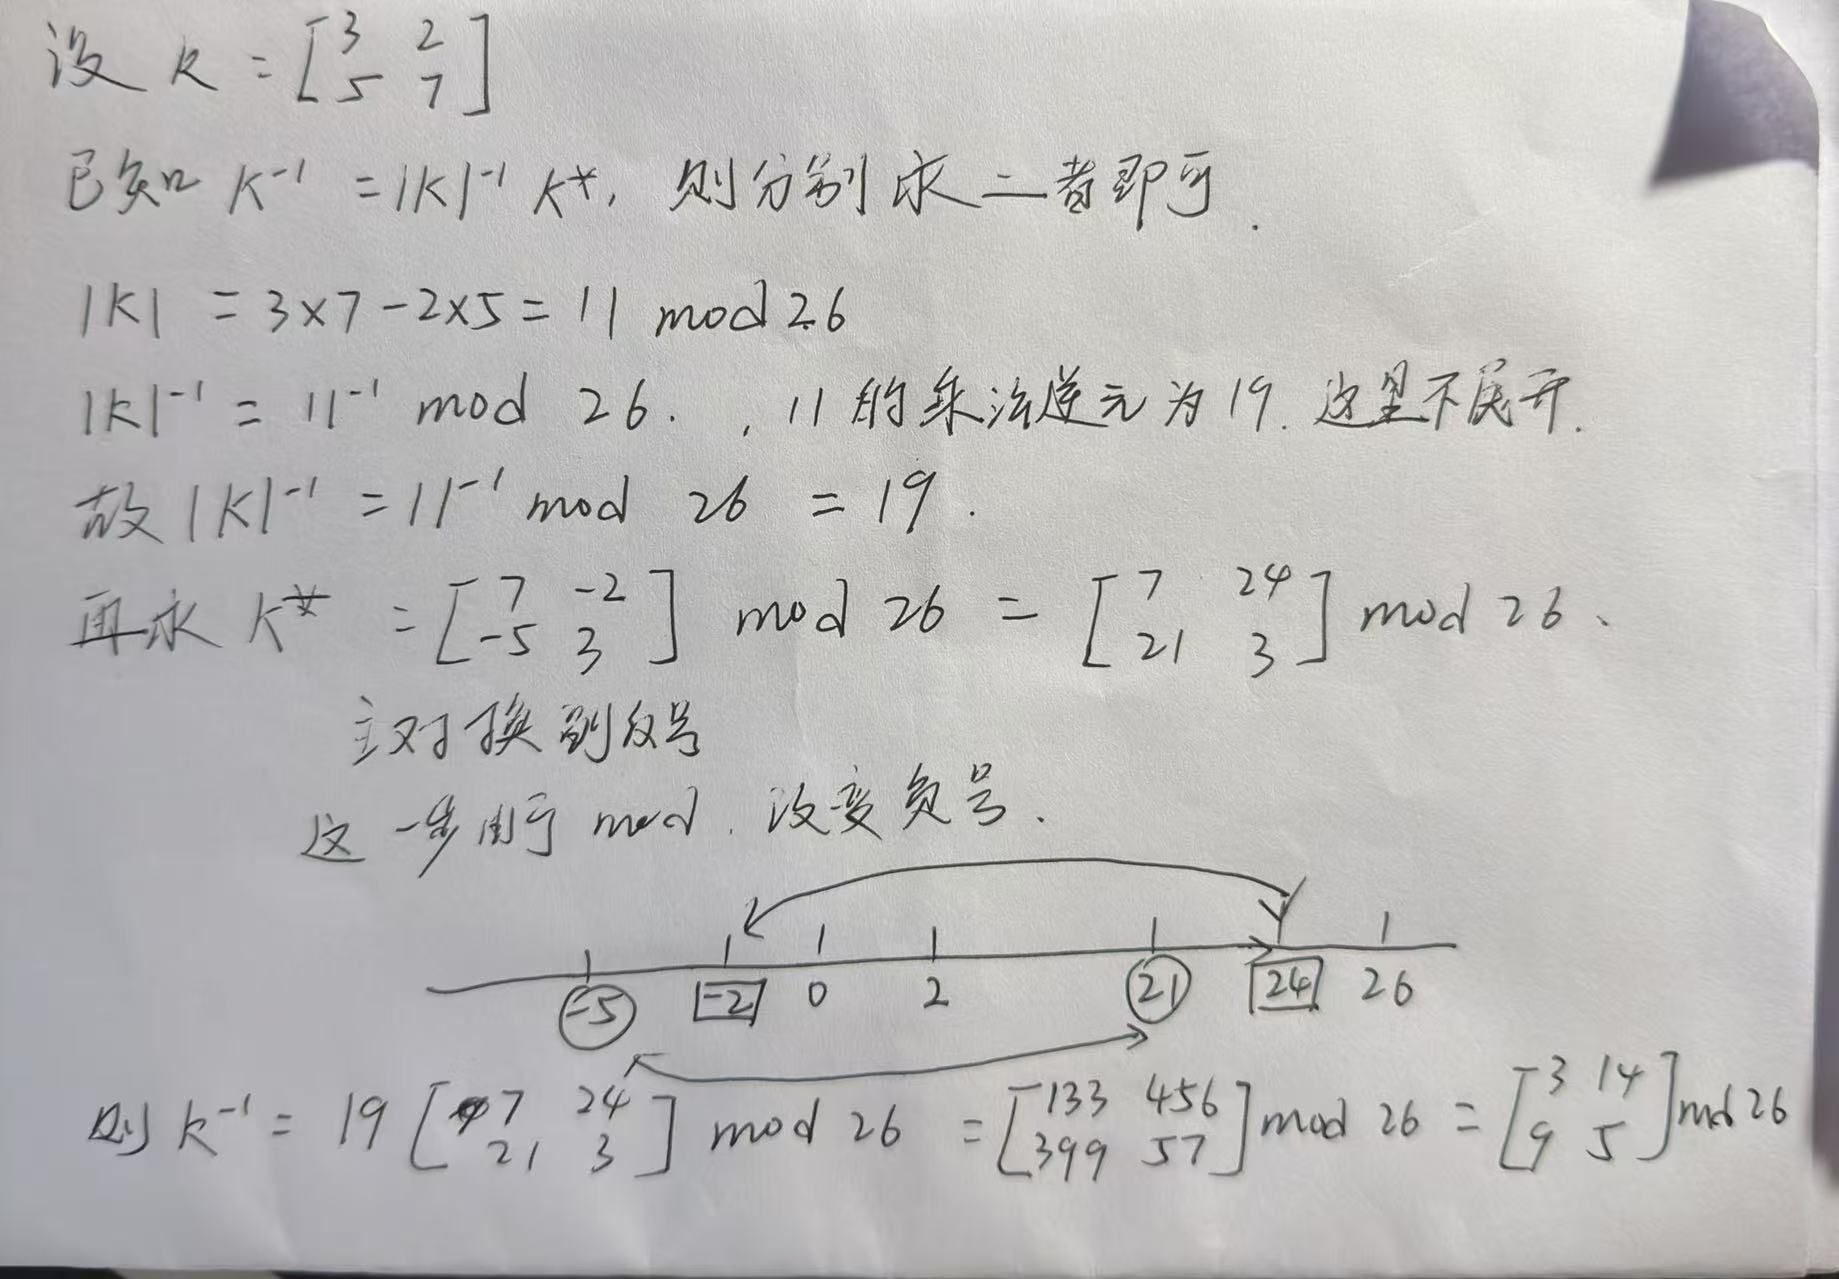 设 k = [3 2
5 7]
已知 K⁻¹ = |K|⁻¹ K*, 则分别求二者即可.
|K| = 3×7-2×5 = 11 mod 26
|K|⁻¹ = 11⁻¹ mod 26. , 11的乘法逆元为19. 这里不展开.
故 |K|⁻¹ = 11⁻¹ mod 26 = 19.
再求 K* = [7 -2
-5 3] mod 26 = [7 24
21 3] mod 26、
主对换副反号
这一步由于 mod. 改变负号.
-5 -2 0 2 21 24 26
则 k⁻¹ = 19 [7 24
21 3] mod 26 = [133 456
399 57] mod 26 = [3 14
9 5] mod 26